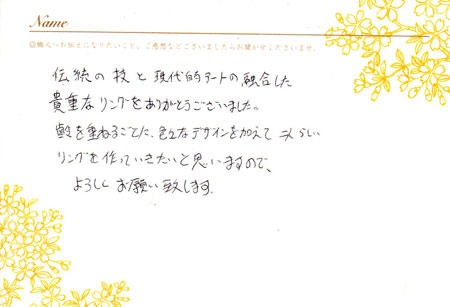 Name
◎職人へお伝えになりたいこと、ご感想などございましたらお聞かせくださいませ。
伝統の技と現代的アートの融合した
貴重なリングをありがとうございました。
齢を重ねるごとに、色々なデザインを加えて 二人らしい
リングを作っていきたいと思いますので、
よろしくお願い致します。